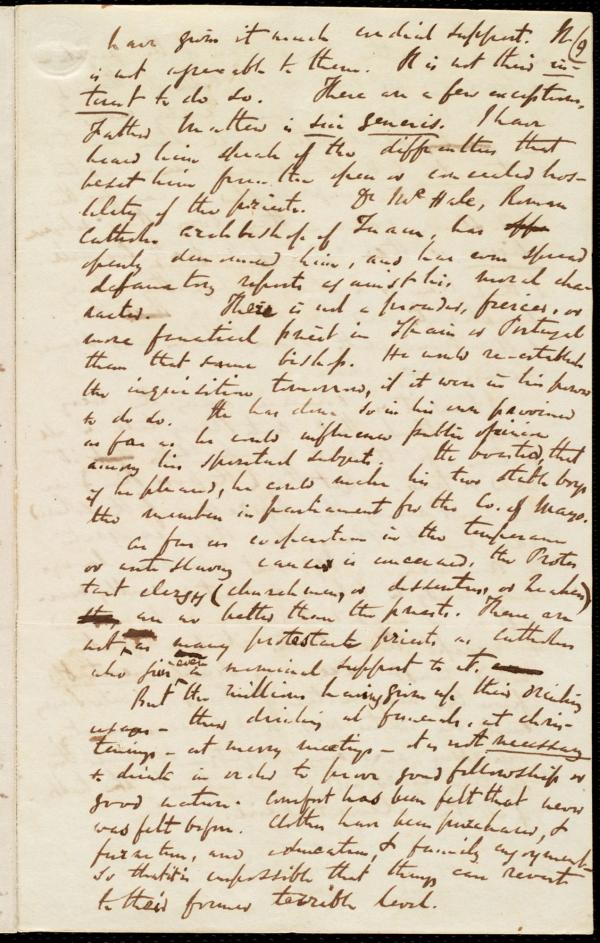 have given it much cordial support. It (9
is not agreeable to them. It is not their in-
terest to do so. There are a few exceptions.
Father Mathew is sui generis. I have
heard him speak of the difficulties that
beset him from the open or concealed hos-
tility of the priests. Dr McHale, Roman
Catholic archbishop of Tuam, has
openly denounced him, and has even spread
defamatory reports against his moral cha-
racter. There is not a prouder, fiercer, or
more fanatical priest in Spain or Portugal
than that same bishop. He would re-establish
the inquisition tomorrow, if it were in his power
to do so. He has done so in his own province
as far as he could influence public opinion
among his spiritual subjects. He boasted, that
if he pleased, he could make his two stable boys
the members in parliament for the Co. of Mayo.
As far as cooperation in the temperance
or anti slavery causes is concerned, the Protes
tant clergy (churchmen, or dissenters, or Quakers)
are no better than the priests. There are
not as many protestant priests as catholics
who give even a nominal support to it.
But the millions having given up their drinking
usages - their drinking at funerals, at chris-
tenings - at merry meetings - it is not necessary
to drink in order to prove good fellowship or
good nature. Comfort has been felt that never
was felt before. Clothes have been purchased, &
furniture, and education, & family enjoyment
so that it is impossible that things can revert
to their former terrible level.